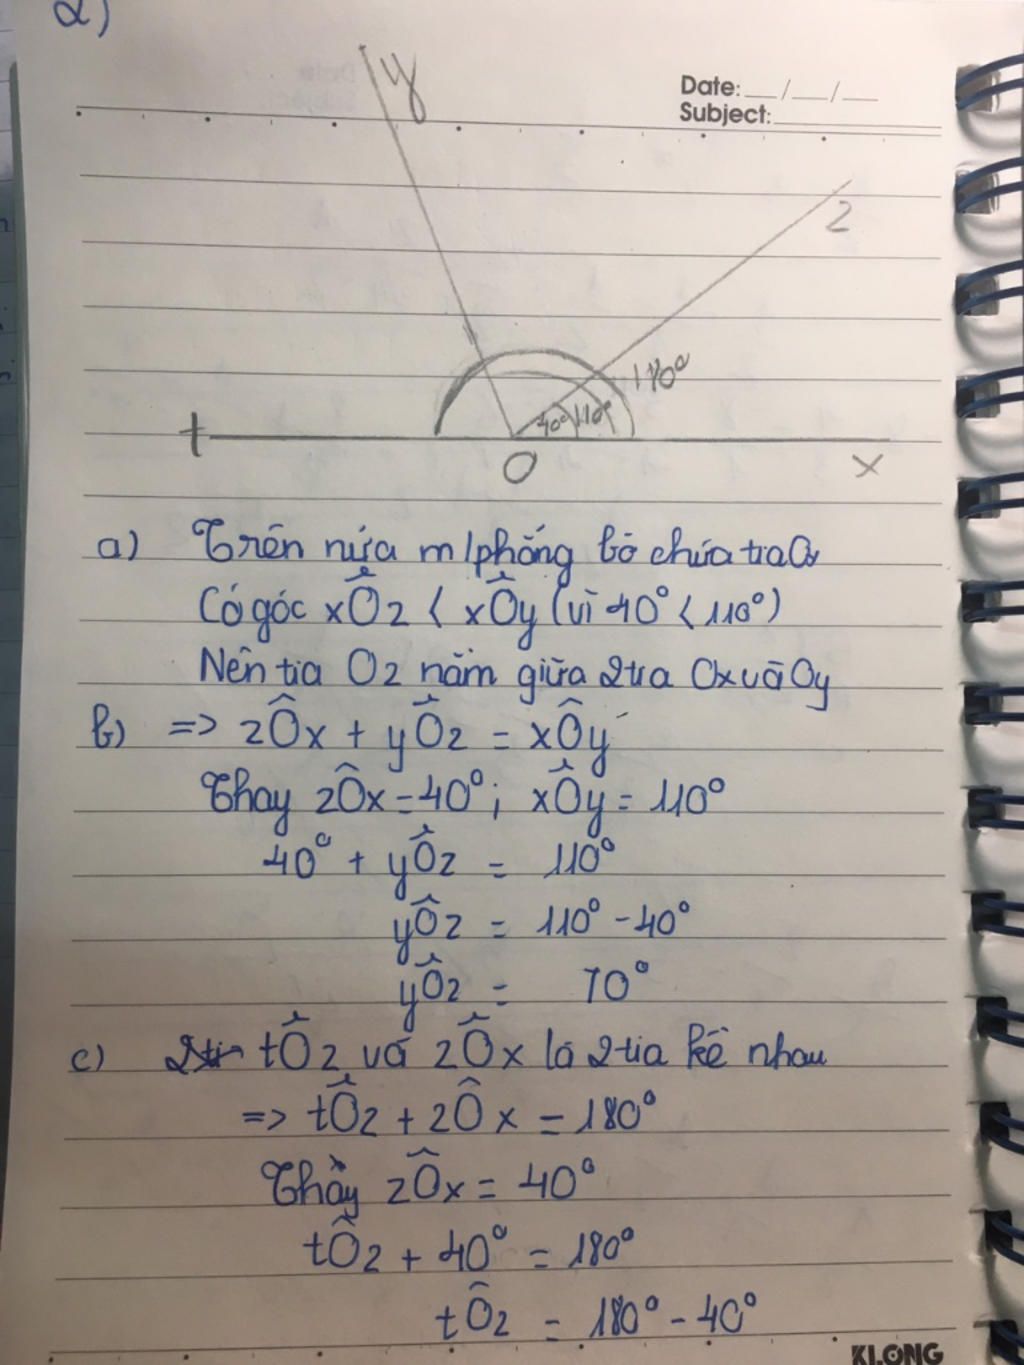 2)
y
Date: __/__/__
Subject:
z
180°
40° 110°
t
O
x
a) Trên nửa m/phẳng bờ chứa tia Ox
Có góc xÔz < xÔy (vì 40° < 110°)
Nên tia Oz nằm giữa 2 tia Ox và Oy
b) => zÔx + yÔz = xÔy
Thay zÔx = 40°; xÔy = 110°
40° + yÔz = 110°
yÔz = 110° - 40°
yÔz = 70°
c) tÔz và zÔx là 2 tia kề nhau
=> tÔz + zÔx = 180°
Thay zÔx = 40°
tÔz + 40° = 180°
tÔz = 180° - 40°
KLONG